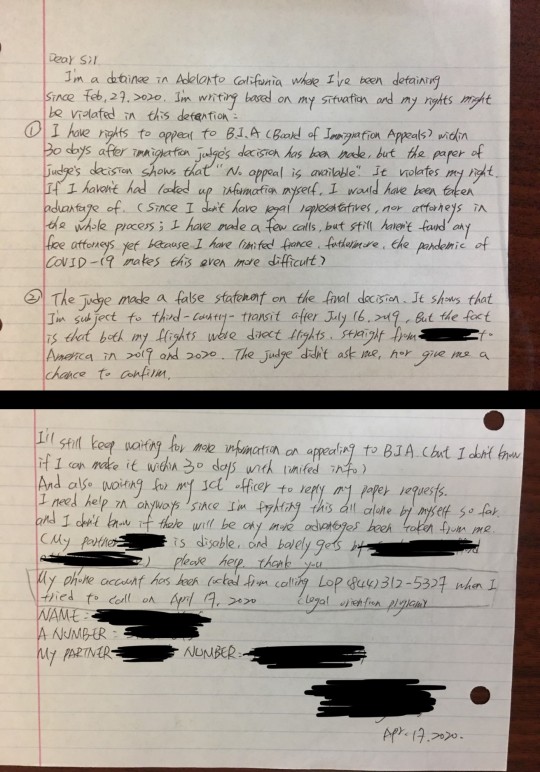 Dear Sir.
I'm a detainee in Adelanto California where I've been detaining
since Feb, 27, 2020. I'm writing based on my situation and my rights might
be violated in this detention:
① I have rights to appeal to B.I.A (Board of Immigration Appeals) within
30 days after immigration judge's decision has been made, but the paper of
judge's decision shows that "No appeal is available". It violates my right.
If I haven't had looked up information myself, I would have been taken
advantage of. (Since I don't have legal representatives, nor attorneys in
the whole process; I have made a few calls, but still haven't found any
free attorneys yet because I have limited , futhermore, the pandemic of
COVID-19 makes this even more difficult)
② The judge made a false statement on the final decision. It shows that
I'm subject to third-country-transit after July 16, 2019. But the fact
is that both my flights were direct flights, straight from to
America in 2019 and 2020. The judge didn't ask me, nor give me a
chance to confirm.
I'll still keep waiting for more information on appealing to BIA (but I don't know
if I can make it within 30 days with limited info)
And also waiting for my ICE officer to reply my paper requests.
I need help in anyways since I'm fighting this all alone by myself so far.
and I don't know if there will be any more advantages been taken from me.
(My partner is disable, and barely gets
) please help. thank you
My phone account has been locked from calling LOP (844)312-5327 when I
tried to call on April 17, 2020 (legal oriention program)
NAME:
A NUMBER:
My PARTNER NUMBER:
Apr. 17. 2020.